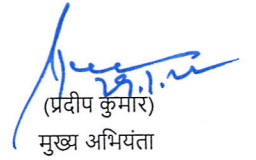 (प्रदीप कुमार)
मुख्य अभियंता